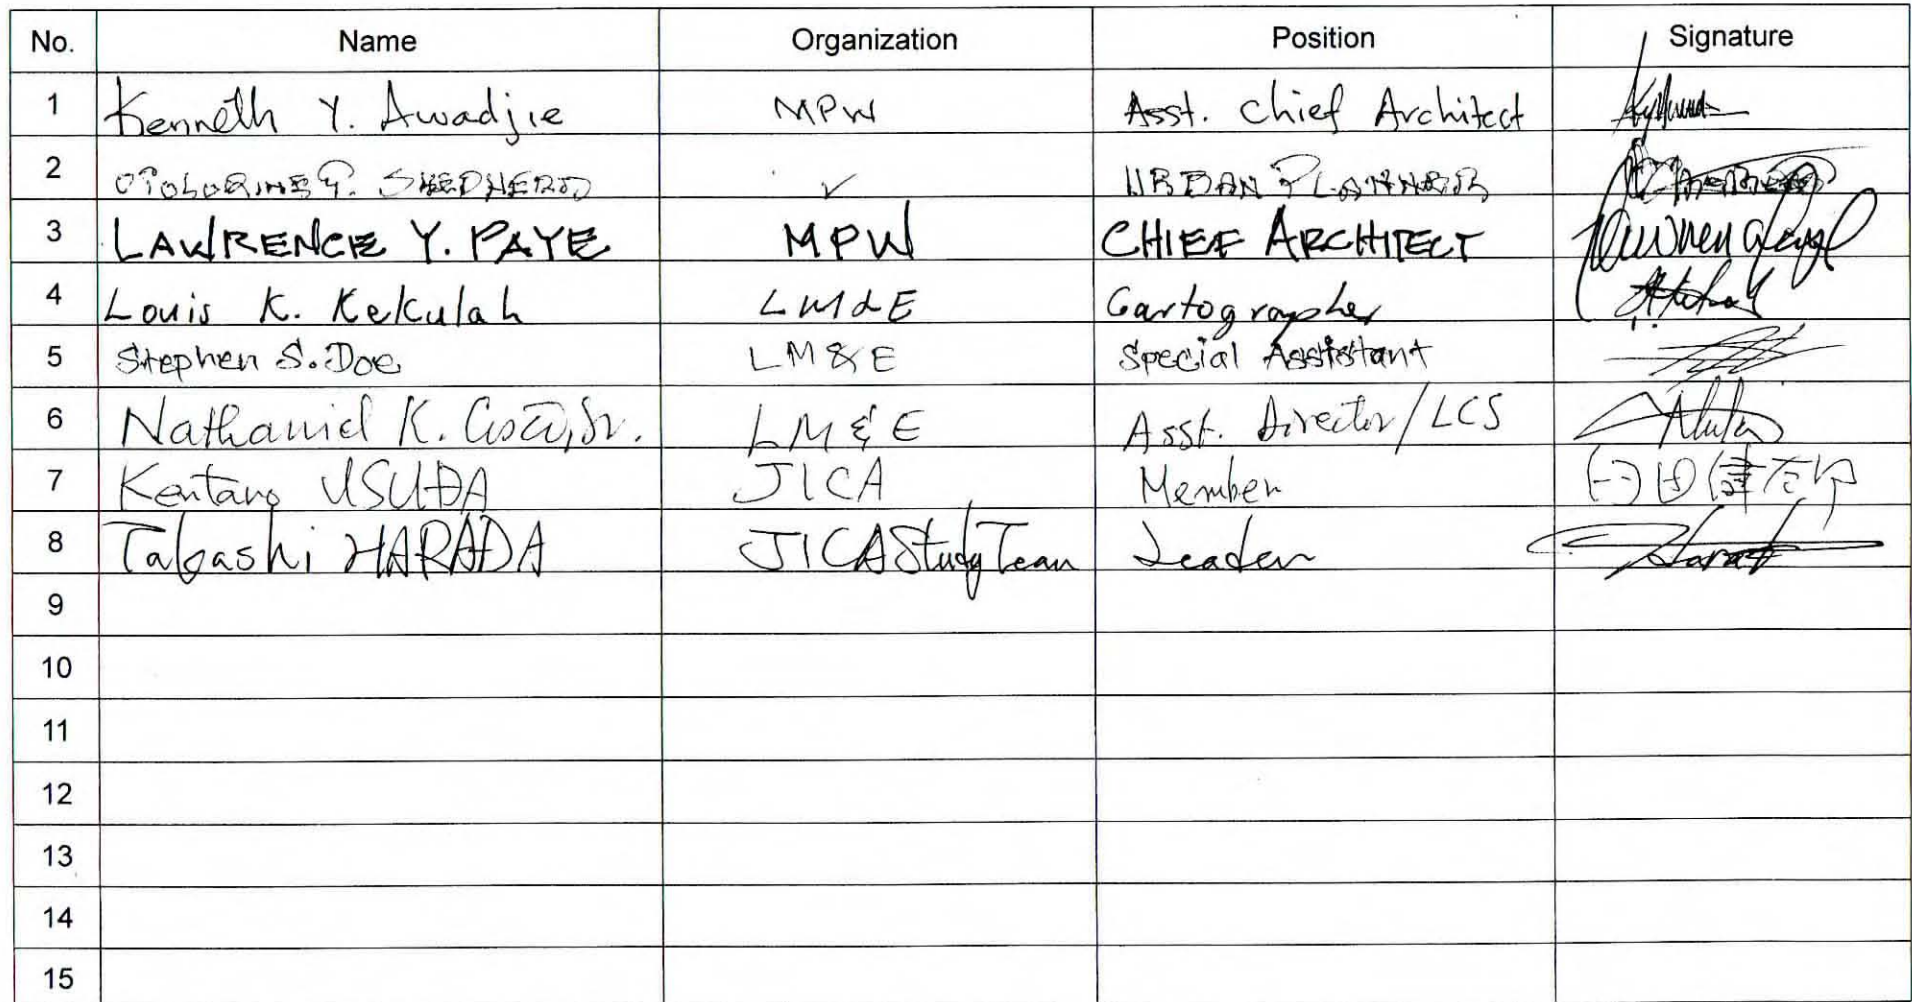 No. Name Organization Position Signature
1 Kenneth Y. Awadjie MPW Asst. Chief Architect
2 SHEPHERD ✓ URBAN PLANNER
3 LAWRENCE Y. PAYE MPW CHIEF ARCHITECT
4 Louis K. Kekulah LM&E Cartographer
5 Stephen S. Doe LM&E Special Assistant
6 Nathaniel K. Sr. LM&E Asst. Director/LCS
7 Kentaro USUDA JICA Member 臼田健太郎
8 Takashi HARADA JICA Study Team Leader
9
10
11
12
13
14
15